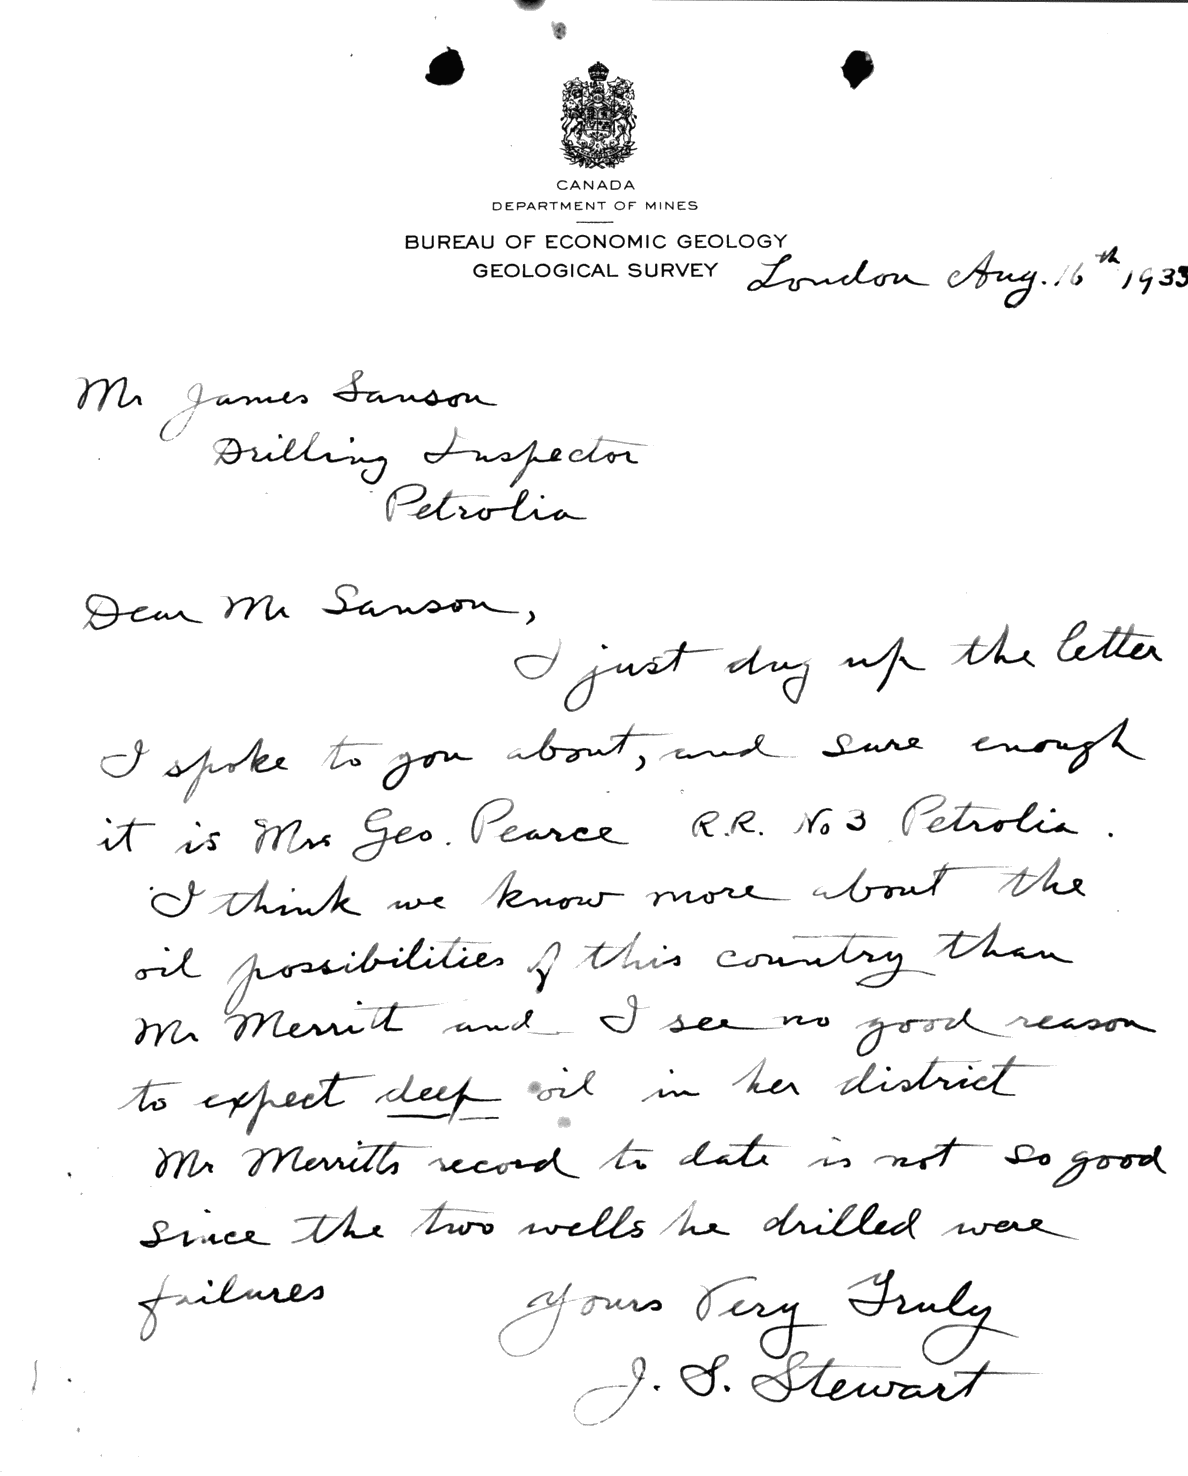 CANADA
DEPARTMENT OF MINES
BUREAU OF ECONOMIC GEOLOGY
GEOLOGICAL SURVEY
London Aug. 16th 1933
Mr James Sanson
Drilling Inspector
Petrolia
Dear Mr Sanson,
I just dug up the letter
I spoke to you about, and sure enough
it is Mrs Geo. Pearce R.R. No 3 Petrolia.
I think we know more about the
oil possibilities of this country than
Mr Merritt and I see no good reason
to expect deep oil in her district
Mr Merritts record to date is not so good
since the two wells he drilled were
failures
Yours Very Truly
J. S. Stewart